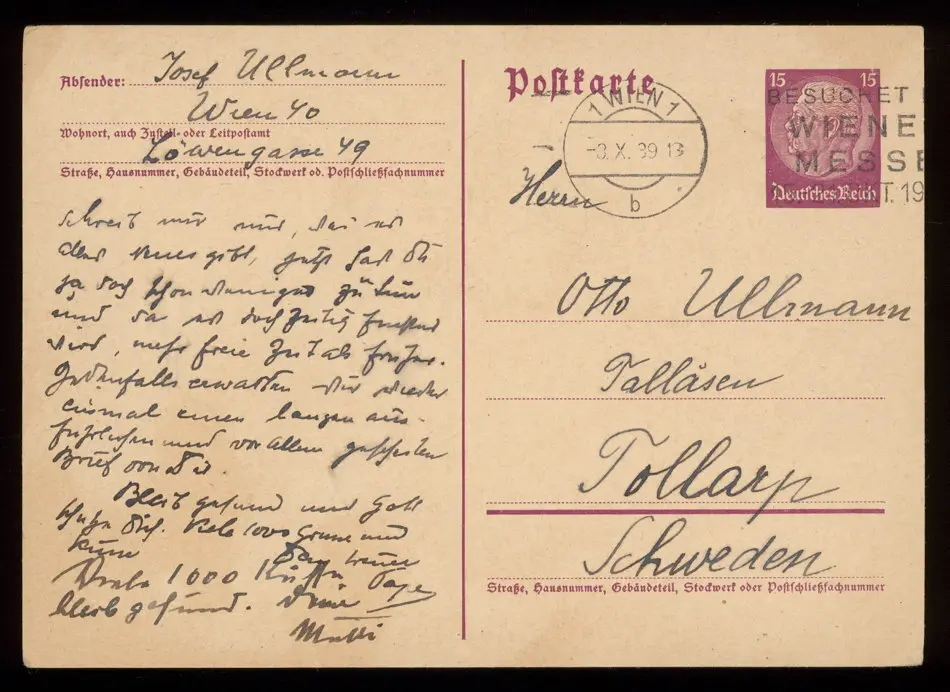 Absender: Josef Ullmann
Wien 40
Wohnort, auch Zustell- oder Leitpostamt
Löwengasse 49
Straße, Hausnummer, Gebäudeteil, Stockwerk od. Postschließfachnummer
Schreib mir nur,
gibt, jetzt hast Du
ja doch schon weniger zu tun
und da es doch zeitig finster
wird, mehr freie Zeit als früher.
Jedenfalls erwarten wir wieder
einmal einen langen aus-
führlichen und vor allem gescheiten
Brief von Dir.
Bleib gesund und Gott
schütze Dich. Viele 1000 Grüsse und
Küsse
Dein treuer
Viele 1000 Küsse Papa
bleib gesund. Deine
Mutti
Postkarte
1 WIEN 1
-3. X. 39 13
b
15 15
Deutsches Reich
BESUCHET
WIENE
MESSE
T. 19
Herrn
Otto Ullmann
Tallåsen
Tollarp
Schweden
Straße, Hausnummer, Gebäudeteil, Stockwerk oder Postschließfachnummer